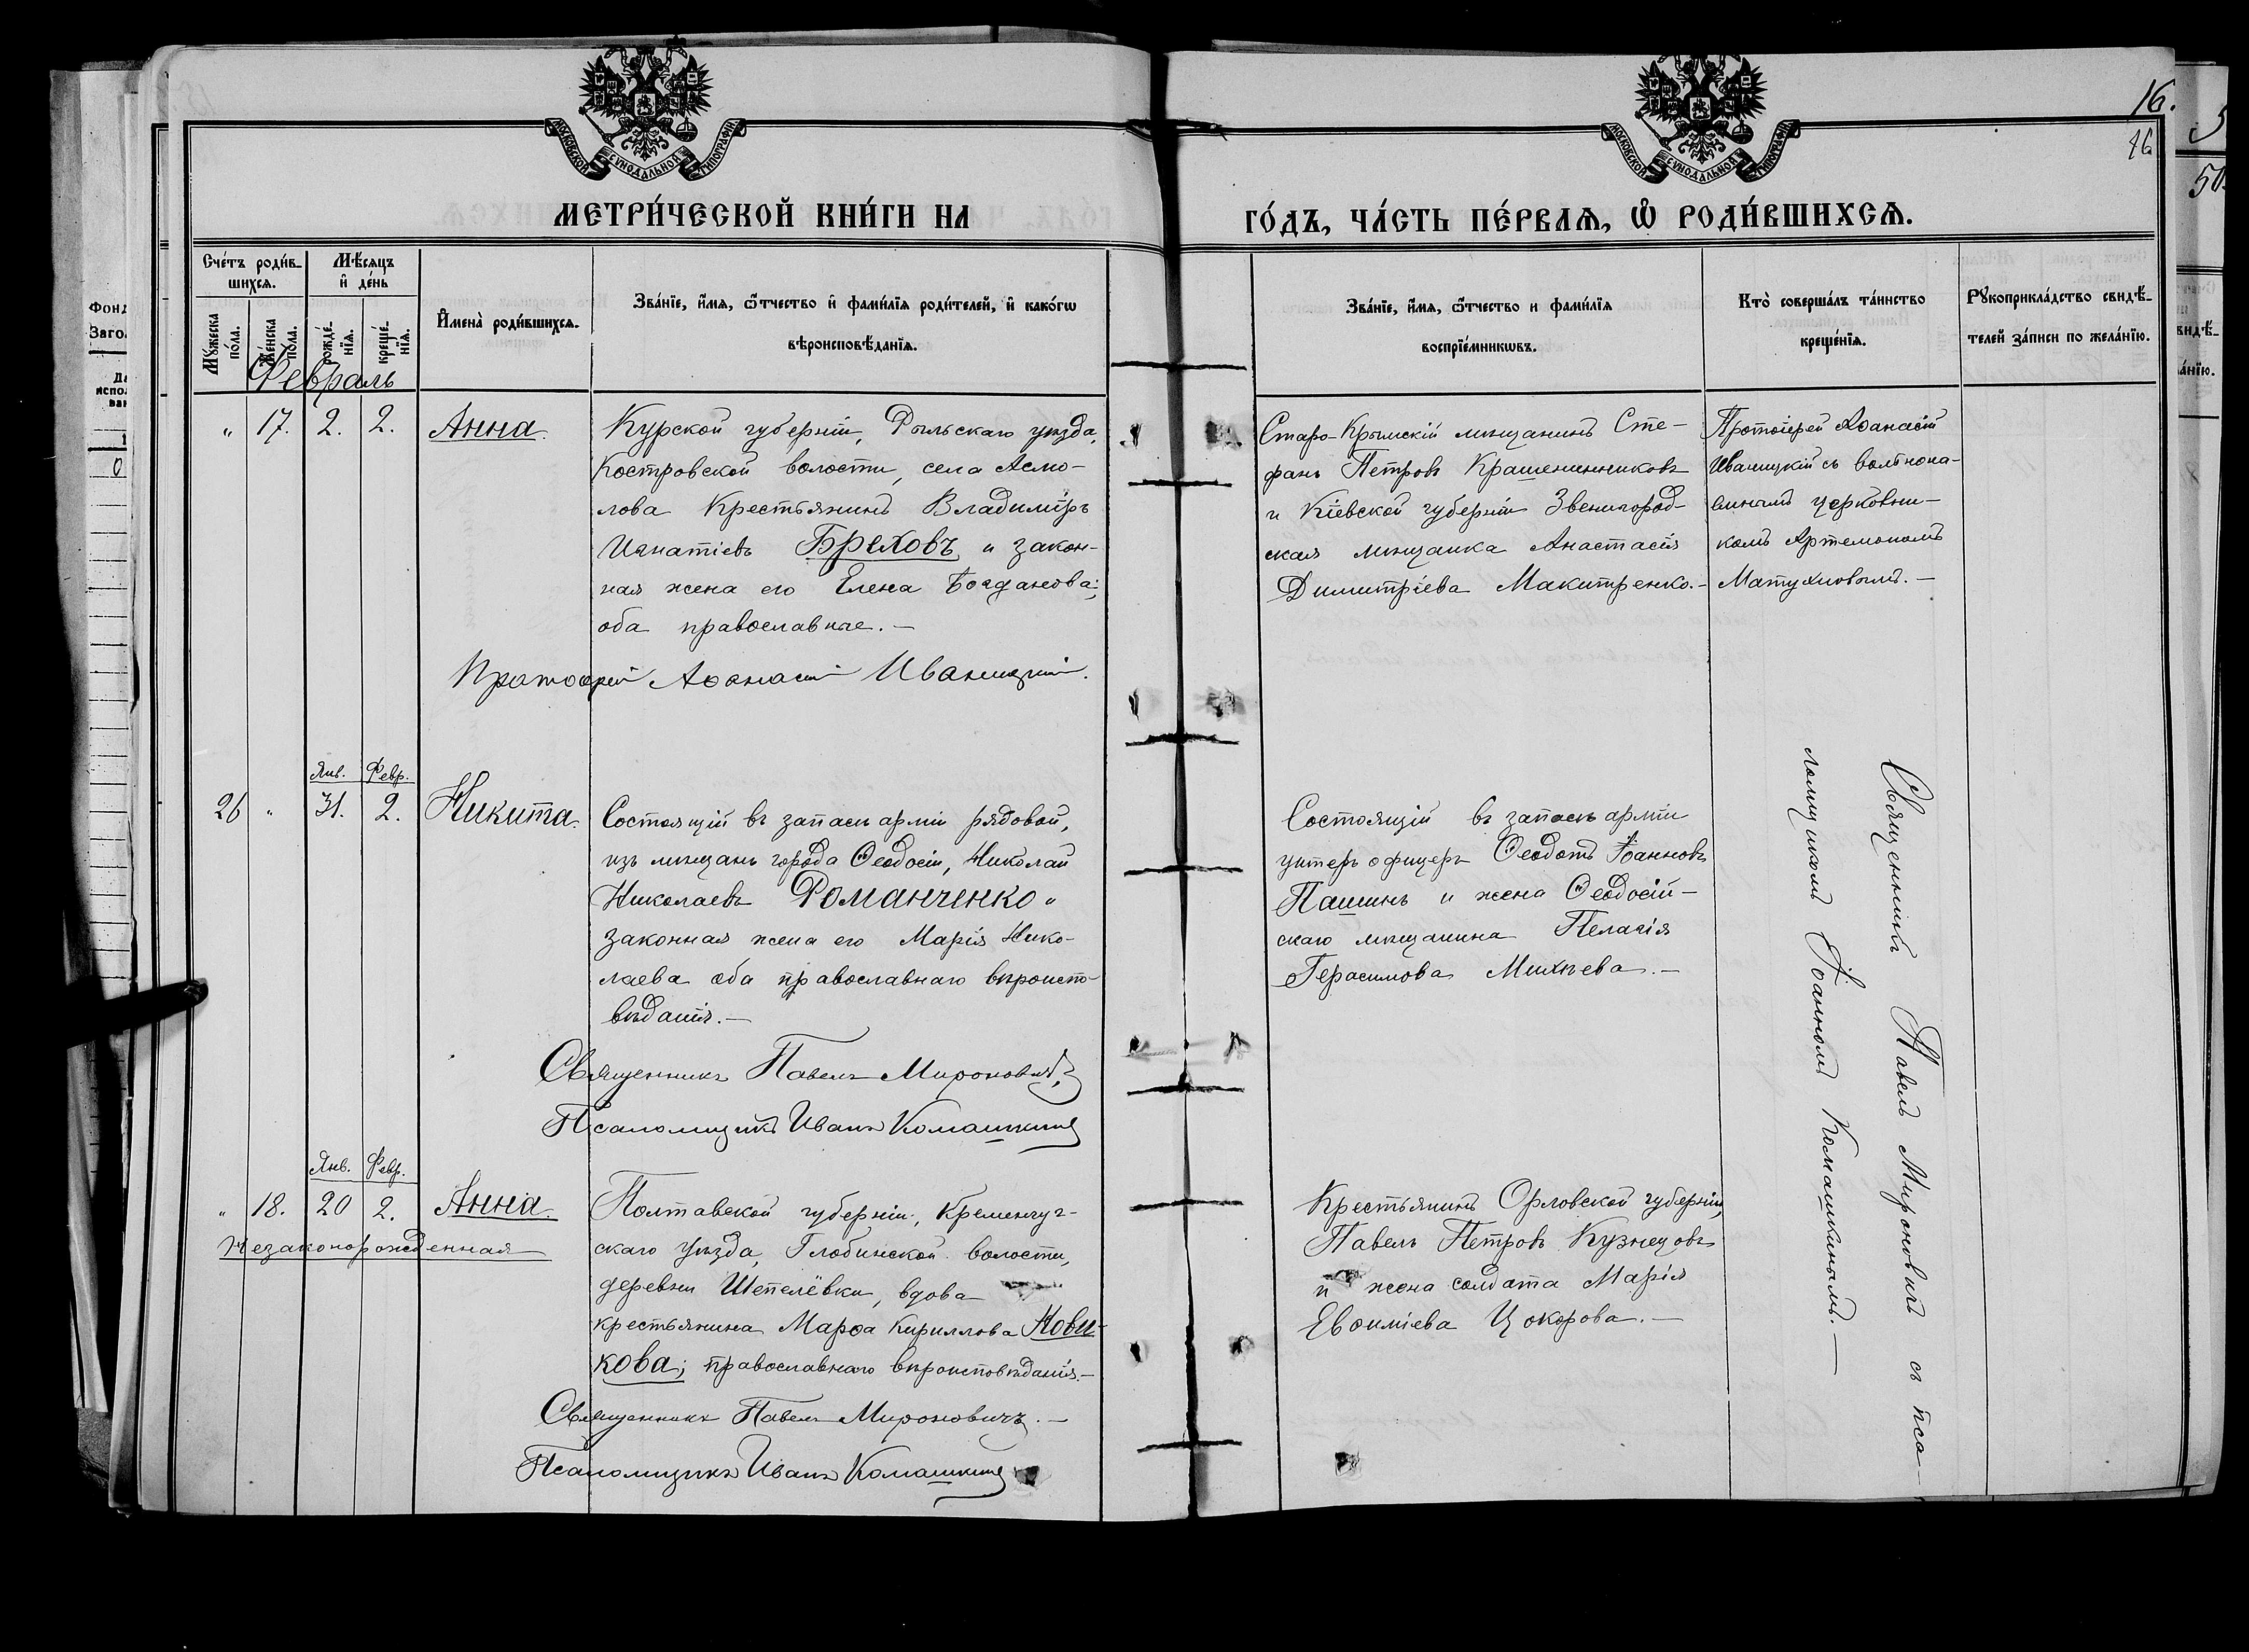 16.
16
МОСКОВСКОЙ СѴНОДАЛЬНОЙ ТИПОГРАФІИ
МОСКОВСКОЙ СѴНОДАЛЬНОЙ ТИПОГРАФІИ
МЕТРИ́ЧЕСКОЙ КНИ́ГИ НА
ГО́ДЪ, ЧА́СТЬ ПЕ́РВАѦ, Ѡ РОДИ́ВШИХСѦ.
Сче́тъ роди́в-
шихсѧ.
Мѣ́сѧцъ
и де́нь
Мꙋ́жеска по́ла.
Же́нска по́ла.
рожде́-
нїѧ.
креще́-
нїѧ.
Имена̀ роди́вшихсѧ.
Зва́нїе, и́мѧ, ѻ́тчество и фами́лїѧ роди́телей, и како́гѡ
вѣроисповѣ́данїѧ.
Зва́нїе, и́мѧ, ѻ́тчество и фами́лїѧ
воспрїе́мникѡвъ.
Кто̀ соверша́лъ та́инство
креще́нїѧ.
Рꙋкоприкла́дство свидѣ́-
телей за́писи по жела́нїю.
Февраль
" 17. 2. 2. Анна.
Курской губерніи, Рыльскаго уѣзда,
Костровской волости, села Асмо-
лова Крестьянинъ Владиміръ
Игнатіевъ Бреховъ и закон-
ная жена его Елена Богданова;
оба православные. —
Протоіерей Аѳанасій Иваницкій.
Старо-Крымскій мѣщанинъ Сте-
фанъ Петровъ Крашенинниковъ
и Кіевской губерніи Звенигород-
ская мѣщанка Анастасія
Димитріева Макитренко. —
Протоіерей Аѳанасій
Иваницкій съ вольнона-
емнымъ церковни-
комъ Артемономъ
Матухновымъ. —
Янв. Февр.
26 " 31. 2. Никита.
Состоящій въ запасѣ арміи рядовой,
изъ мѣщанъ города Ѳеодосіи, Николай
Николаевъ Романченко и
законная жена его Марія Нико-
лаева оба православнаго вѣроиспо-
вѣданія. —
Священникъ Павелъ Мироновичъ
Псаломщикъ Иванъ Комашкинъ
Состоящій въ запасѣ арміи
унтеръ офицеръ Ѳеодотъ Іоанновъ
Пашинъ и жена Ѳеодосій-
скаго мѣщанина Пелагія
Герасимова Михѣева. —
Священникъ Павелъ Мироновичъ съ псо-
ломщикомъ Іоанномъ Комашкинымъ. —
Янв. Февр.
" 18. 20 2. Анна.
Незаконорожденная
Полтавской губерніи, Кременчуг-
скаго уѣзда, Глобинской волости,
деревни Шепелёвки, вдова
крестьянина Марѳа Кириллова Нови-
кова; православнаго вѣроисповѣданія. —
Священникъ Павелъ Мироновичъ. —
Псаломщикъ Иванъ Комашкинъ
Крестьянинъ Орловской губерніи,
Павелъ Петровъ Кузнецовъ
и жена солдата Марія
Евѳиміева Цокорова. —
Фонд
Заго
50